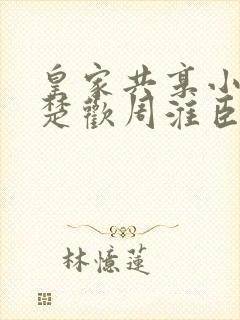 皇家共享小
楚歡周淮臣
林憶蓮